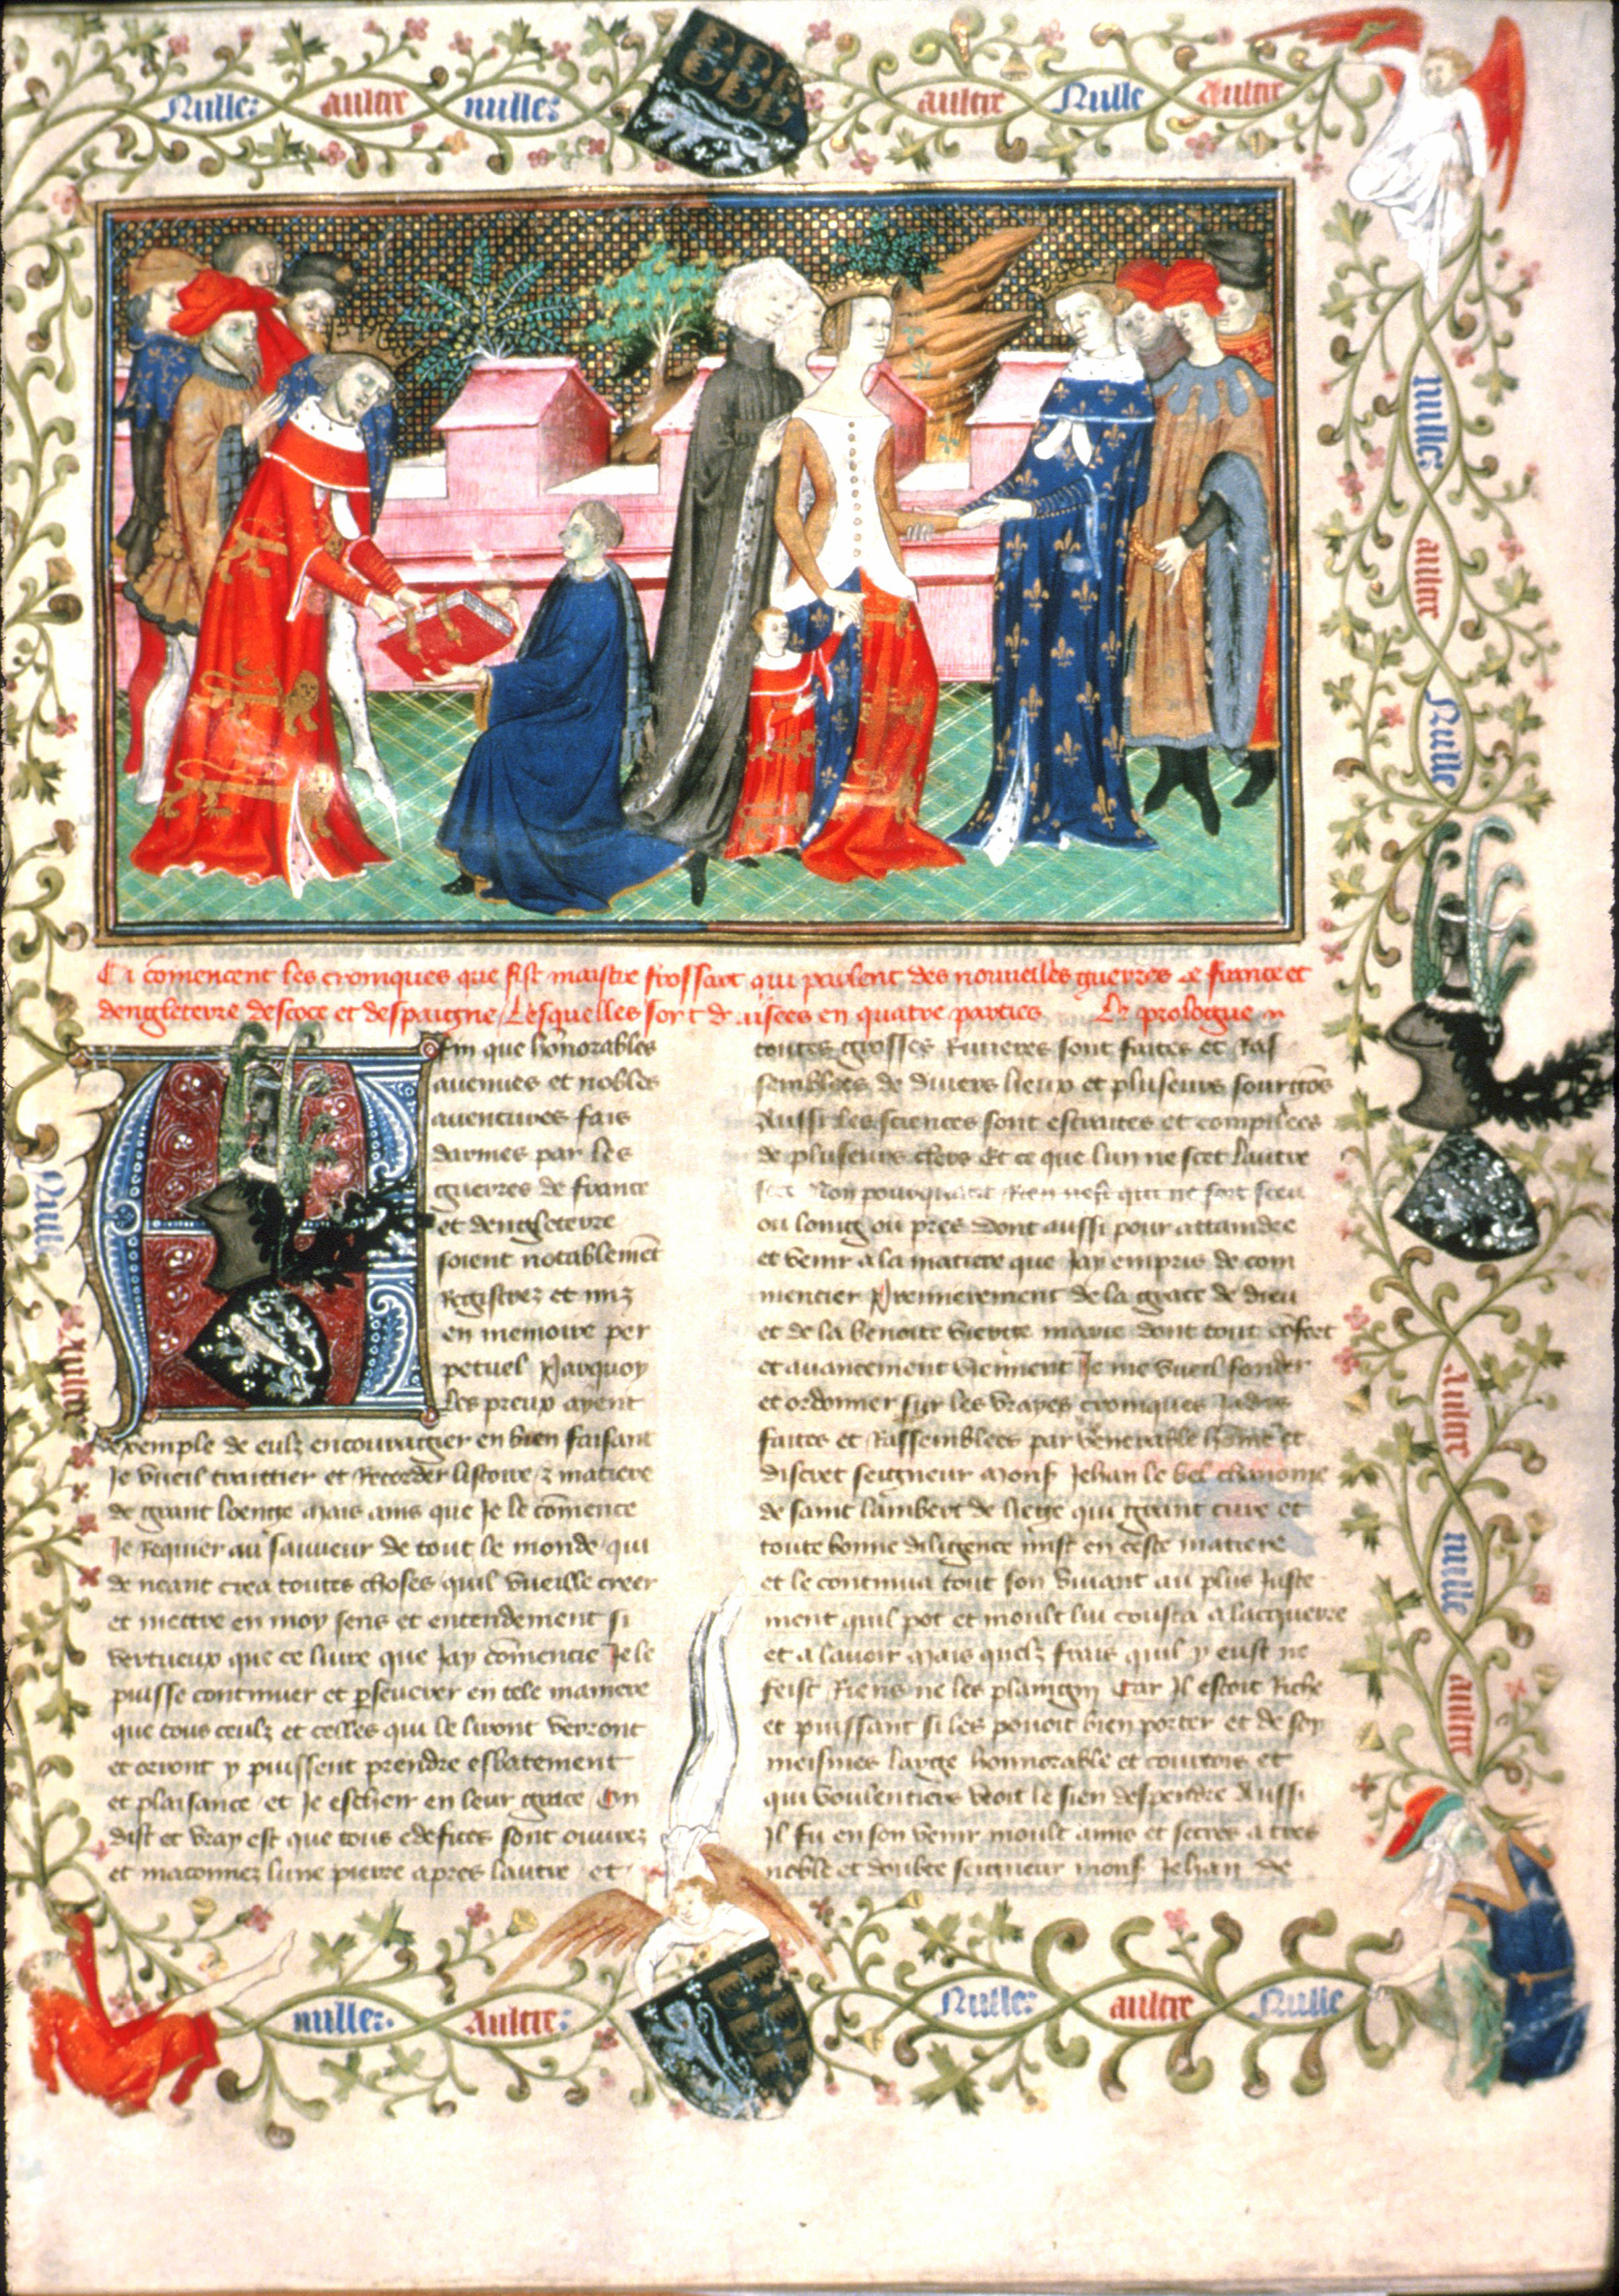 Nulle: aultre nulle: aultre Nulle Aultre
nulle: aultre Nulle Aultre nulle aultre
Ci cōmencent les croniques que fist maistre froissart qui parlent des nouuelles guerres de france et
dengleterre descoce et despaigne / Lesquelles sont diuisees en quatre parties Le prologue
Afin que hōnorables
auenues et nobles
auentures fais
darmes par les
guerres de france
et dengleterre
soient notablemēt
Registrez et mis
en memoire per
petuel Parquoy
les preux ayent
exemple de eulz encouragier en bien faisant
Je vueil traittier et Recorder listoire & matiere
de grant loenge Mais ains que Je le cōmence
Je Requier au sauueur de tout le monde qui
de neant crea toutes choses quil vueille creer
et mettre en moy sens et entendement si
vertueux que ce liure que Jay cōmencie Je le
puisse continuer et pseuerer en tele maniere
que tous ceulz et celles qui le liront verront
et orront y puissent prendre esbatement
et plaisance / et Je escheir en leur grace On
dist et vray est que tous edefices sont ouurez
et maconnez lune pierre apres lautre / et
toutes grosses Riuieres sont faites et Ras
semblees de diuers lieux et pluseurs sourcōs
Aussi les sciences sont estraites et compilees
de pluseurs clers Et ce que lun ne scet lautre
scet Non pourquant Rien nest qui ne soit sceu
ou loing ou pres Dont aussi pour attaindre
et venir a la matiere que Jay empris de com
mencier Premierement de la grace de dieu
et de la benoite vierge marie dont tout cōfort
et auancement viennent Je me vueil fonder
et ordonner sur les vrayes croniques Jadis
faites et Rassemblees par venerable hōme et
discret seigneur Monsʳ Jehan le bel chanoine
de saint lambert de liege qui grant cure et
toute bonne diligence mist en ceste matiere
et le continua tout son viuant au plus Juste
ment quil pot et moult lui cousta a lacquerre
et a lauoir Mais quelz frais quil y eust ne
feist Riens ne les plaingny Car Il estoit Riche
et puissant si les pouoit bien porter et de soy
meismes large honnorable et courtois et
qui voulentiers veoit le sien despendre Aussi
Il fu en son venir moult amis et secres a tres
noble et doubte seigneur monsʳ Jehan de
Nulle
Aultre
nulle: Aultre: Nulle: aultre Nulle